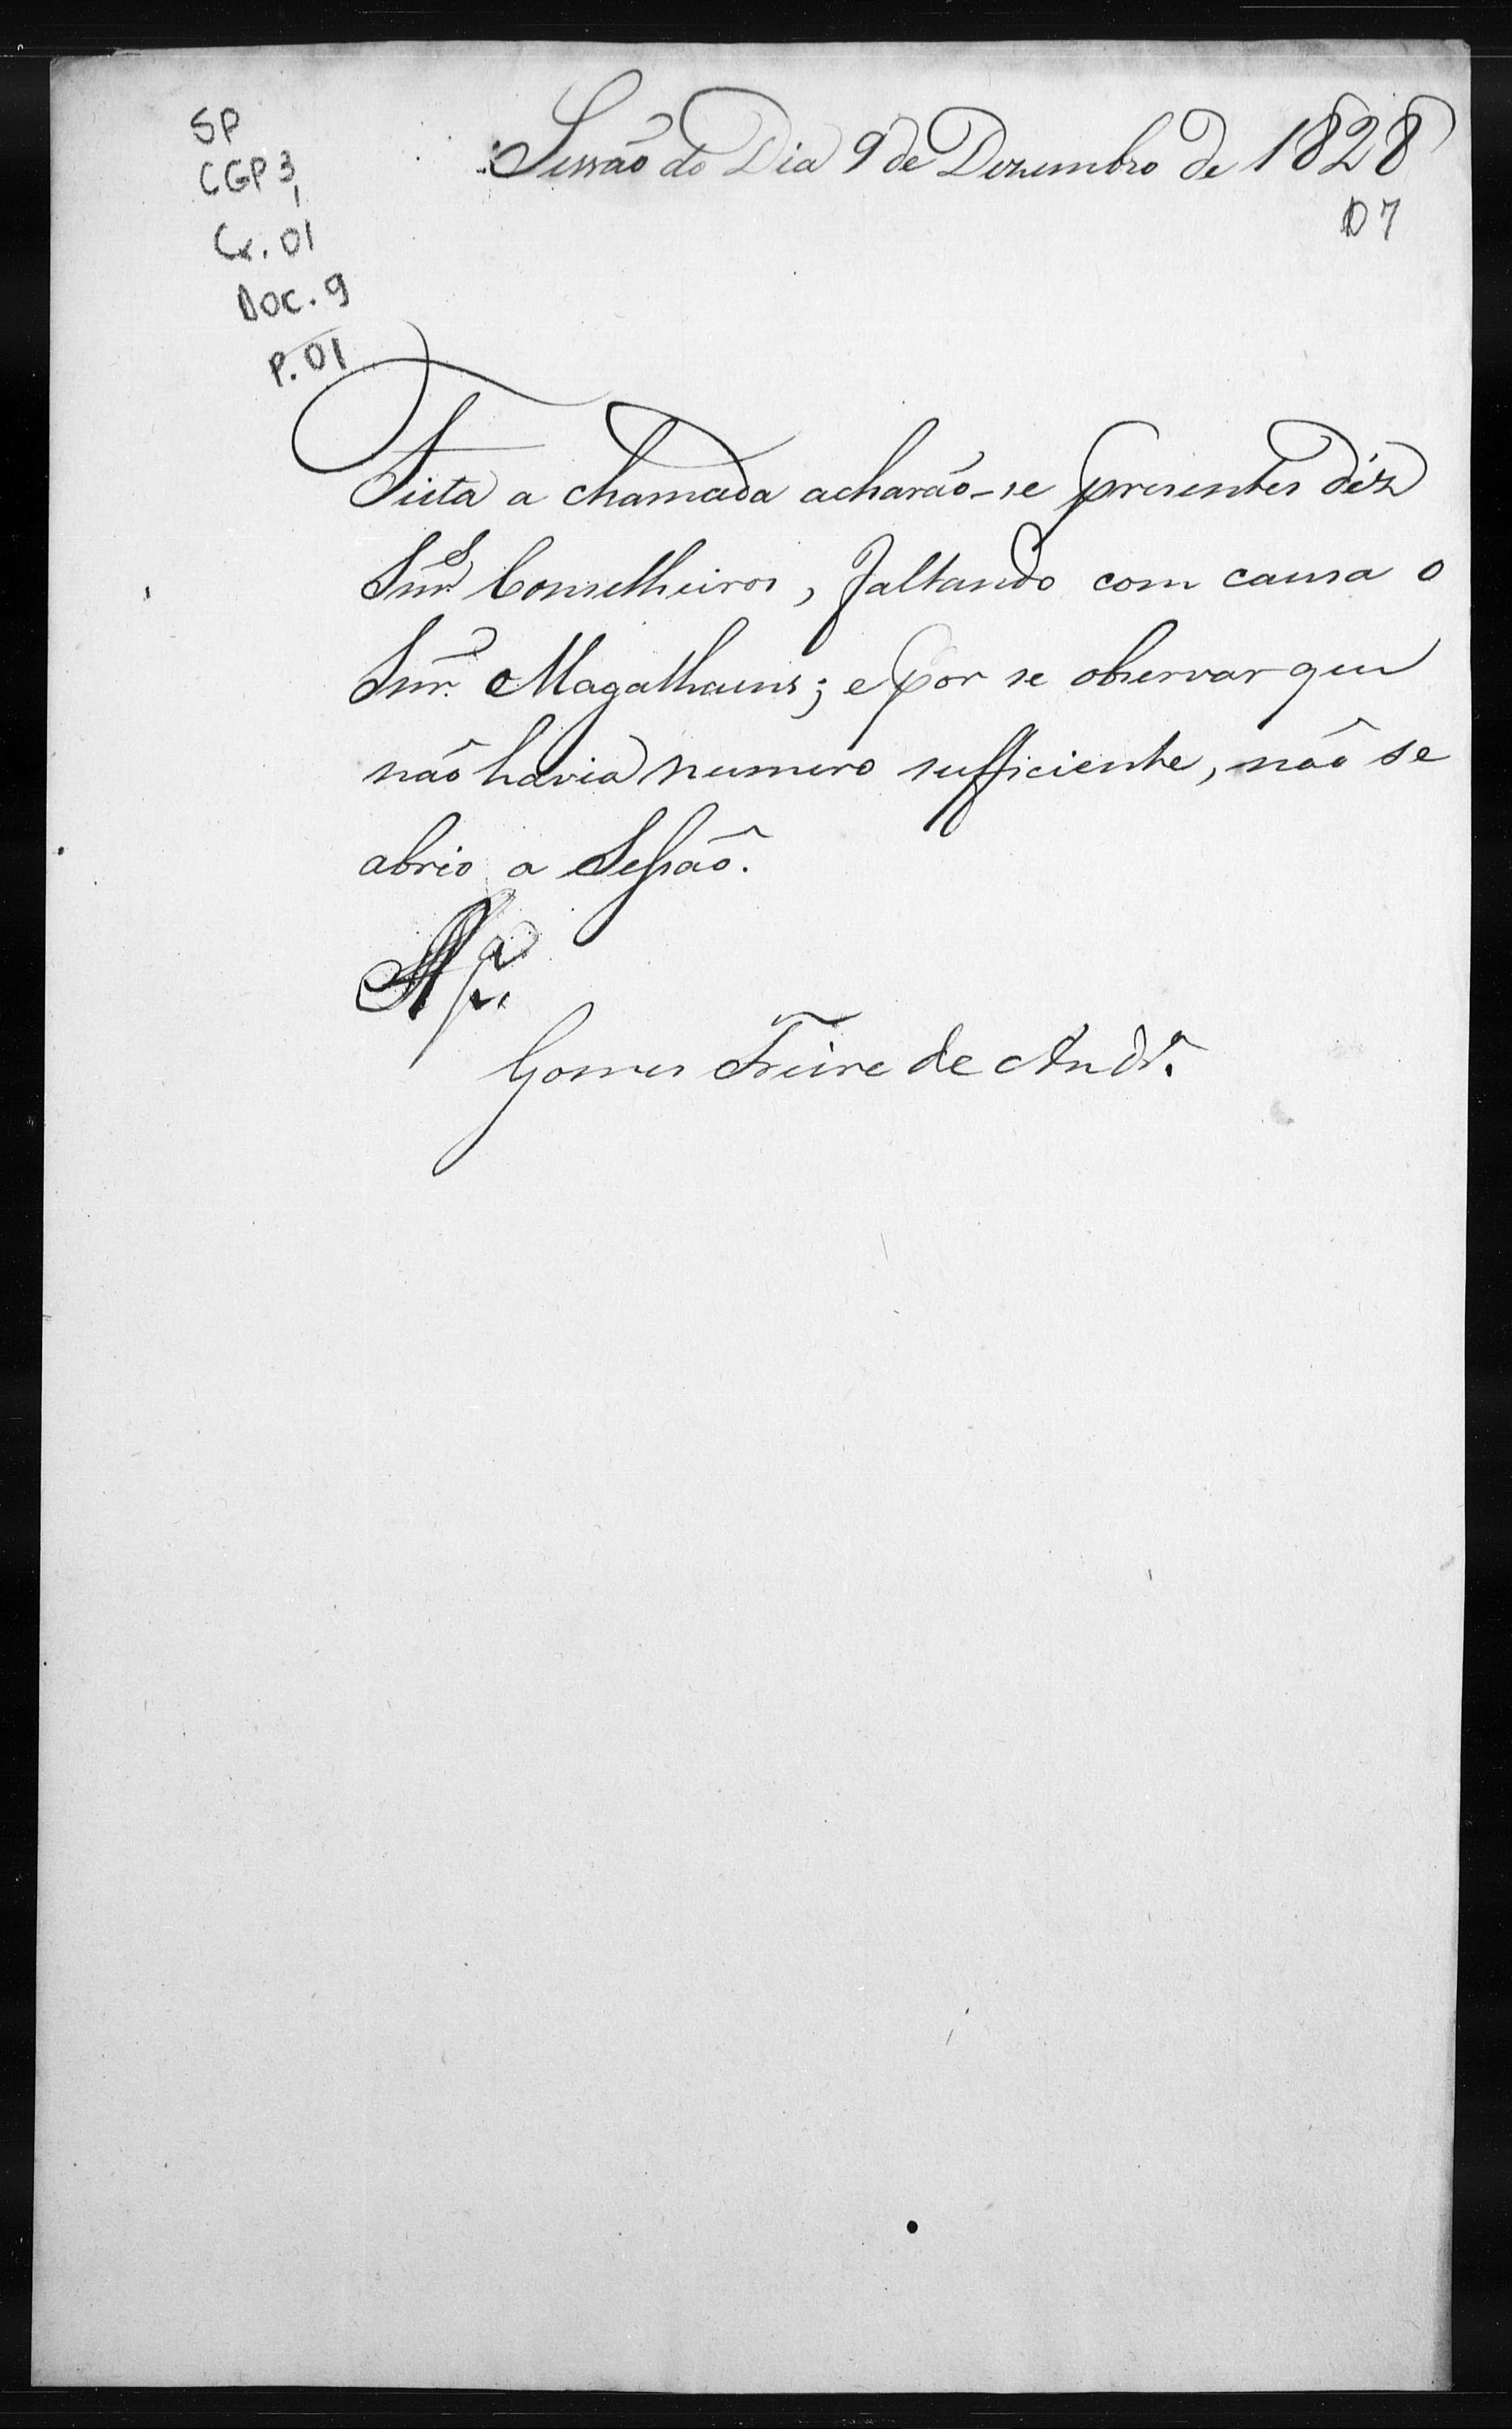 SP
CGP 3,
Cx. 01
Doc. 9
P. 01
Sessão do Dia 9 de Dezembro de 1828
07
Feita a chamada acharão-se prezentes déz
Snr.s Conselheiros, faltando com causa o
Snr. Magalhaens; e por se observar que
não havia numero sufficiente, não se
abrio a Sessão.
Gomes Freire de Andr.e